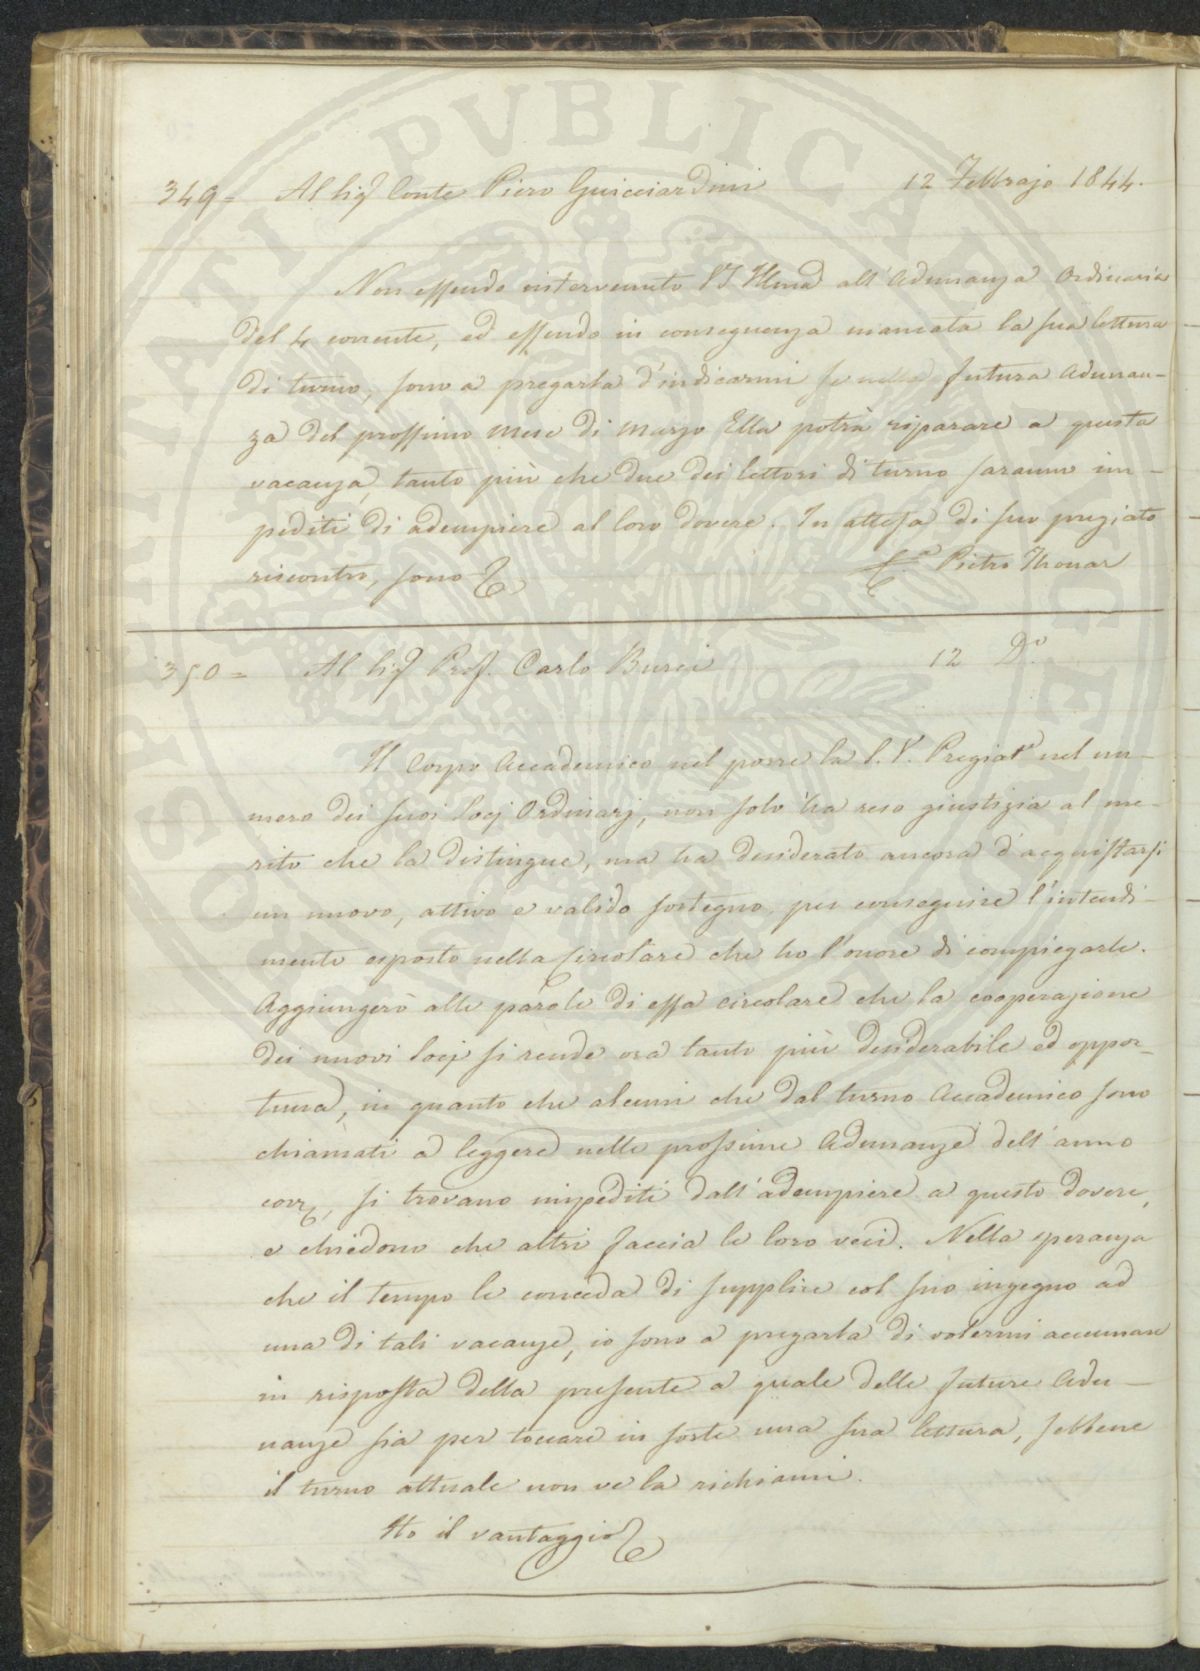 349= Al Sig.r Conte Piero Guicciardini 12 Febbrajo 1844.
Non essendo intervenuto VS Illma all'Adunanza Ordinaria
del 4 corrente, ed essendo in conseguenza mancata la sua lettura
di turno, sono a pregarla d'indicarmi se nella futura Adunan-
za del prossimo Mese di Marzo Ella potrà riparare a questa
vacanza, tanto più che due dei lettori di turno saranno im-
pediti di adempiere al loro dovere. In attesa di suo pregiato
riscontro, sono
Pietro Thouar
350= Al Sig.r Prof. Carlo Burci 12 D.o
Il Corpo Accademico nel porre la S.V. Pregiat.a nel nu-
mero dei suoi Socj Ordinarj, non solo ha reso giustizia al me-
rito che la distingue, ma ha desiderato ancora d'acquistarsi
un nuovo, attivo e valido sostegno per conseguire l'intendi-
mento esposto nella circolare che ho l'onore di compiegarle.
Aggiungerò alle parole di essa circolare che la cooperazione
dei nuovi Socj si rende ora tanto più desiderabile ed oppor-
tuna, in quanto che alcuni che dal turno Accademico sono
chiamati a leggere nelle prossime Adunanze dell'anno
corr, si trovano impediti dall'adempiere a questo dovere,
e chiedono che altri faccia le loro veci. Nella speranza
che il tempo le conceda di supplire col suo ingegno ad
una di tali vacanze, io sono a pregarla di volermi accennare
in risposta della presente a quale delle future Adu-
nanze sia per toccare in sorte una sua lettura, sebbene
il turno attuale non ve la richiami.
Ho il vantaggio
PVBLICAE